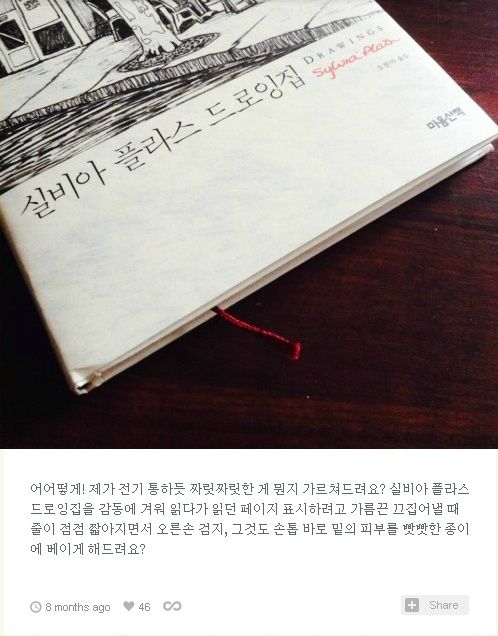 DRAWINGS
Sylvia Plath
실비아 플라스 드로잉집
오현아 옮김
마음산책
어어떻게! 제가 전기 통하듯 짜릿짜릿한 게 뭔지 가르쳐드려요? 실비아 플라스
드로잉집을 감동에 겨워 읽다가 읽던 페이지 표시하려고 가름끈 끄집어낼 때
줄이 점점 짧아지면서 오른손 검지, 그것도 손톱 바로 밑의 피부를 빳빳한 종이
에 베이게 해드려요?
8 months ago 46
Share